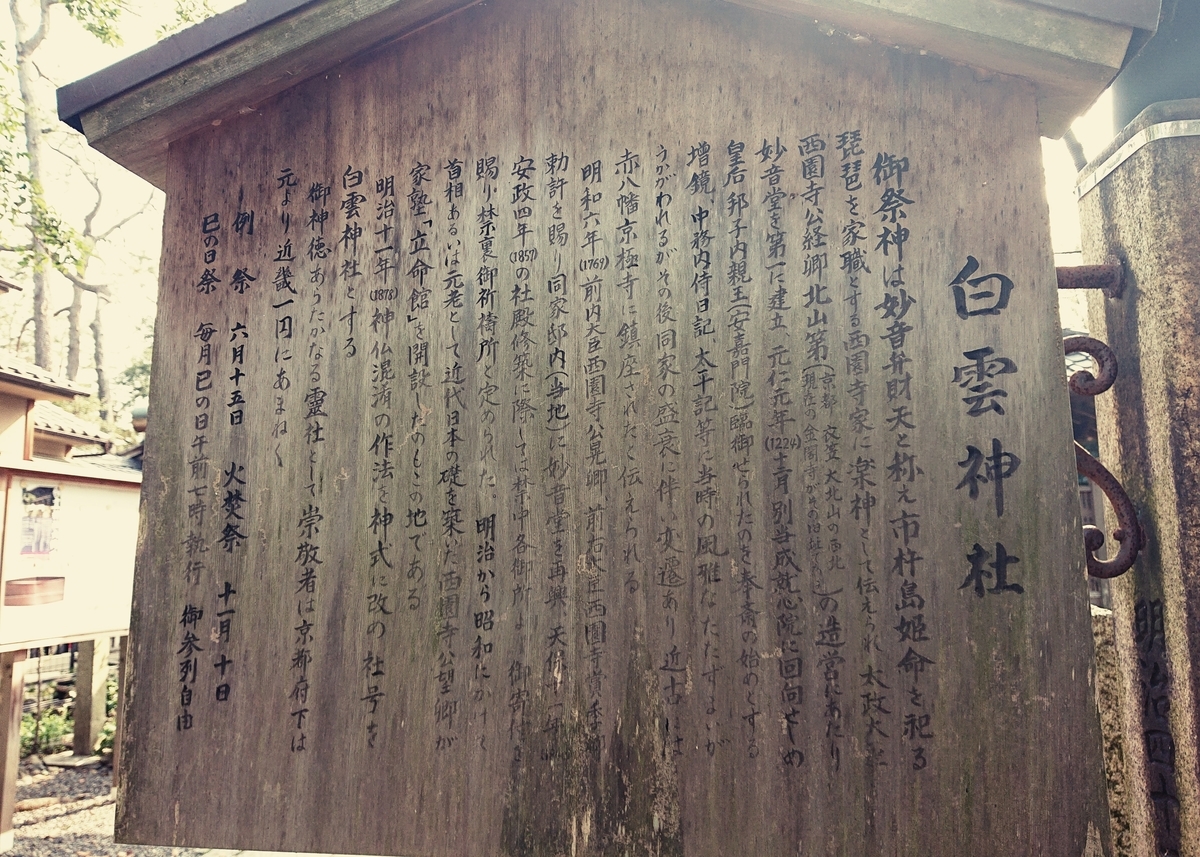 白雲神社
御祭神は妙音弁財天と称え市杵島姫命を祀る
琵琶を家職とする西園寺家に楽神として伝えられ 太政大臣
西園寺公経卿 北山第(京都 衣笠大北山の西北 現在の金閣寺がその旧蹟)の造営にあたり
妙音堂を第一に建立、元仁元年(1224)十二月 別当成就心院に回向せしめ
皇后 邦子内親王(安嘉門院)臨御せられたのを奉斎の始めとする
増鏡、中務内侍日記、太平記等に当時の風雅なたたずまいが
うかがわれるがその後同家の盛衰に伴い変遷あり 近古には
赤八幡京極寺に鎮座されたと伝えられる
明和六年(1769)前内大臣西園寺公晃卿、前右大臣西園寺賞季卿
勅許を賜り同家邸内(当地)に妙音堂を再興 天保 年
安政四年(1857)の社殿修築に際しては禁中各御所より御寄付を
賜り禁裏御祈祷所と定められた。明治から昭和にかけて
首相あるいは元老として近代日本の礎を築いた西園寺公望卿が
家塾「立命館」を開設したのもこの地である
明治十一年(1878)神仏混淆の作法を神式に改め 社号を
白雲神社とする
御神徳あらたかなる霊社として崇敬者は京都府下は
元より近畿一円にあまねく
例祭 六月十五日 火焚祭 十一月十日
巳の日祭 毎月巳の日午前七時執行 御参列自由
明治四十